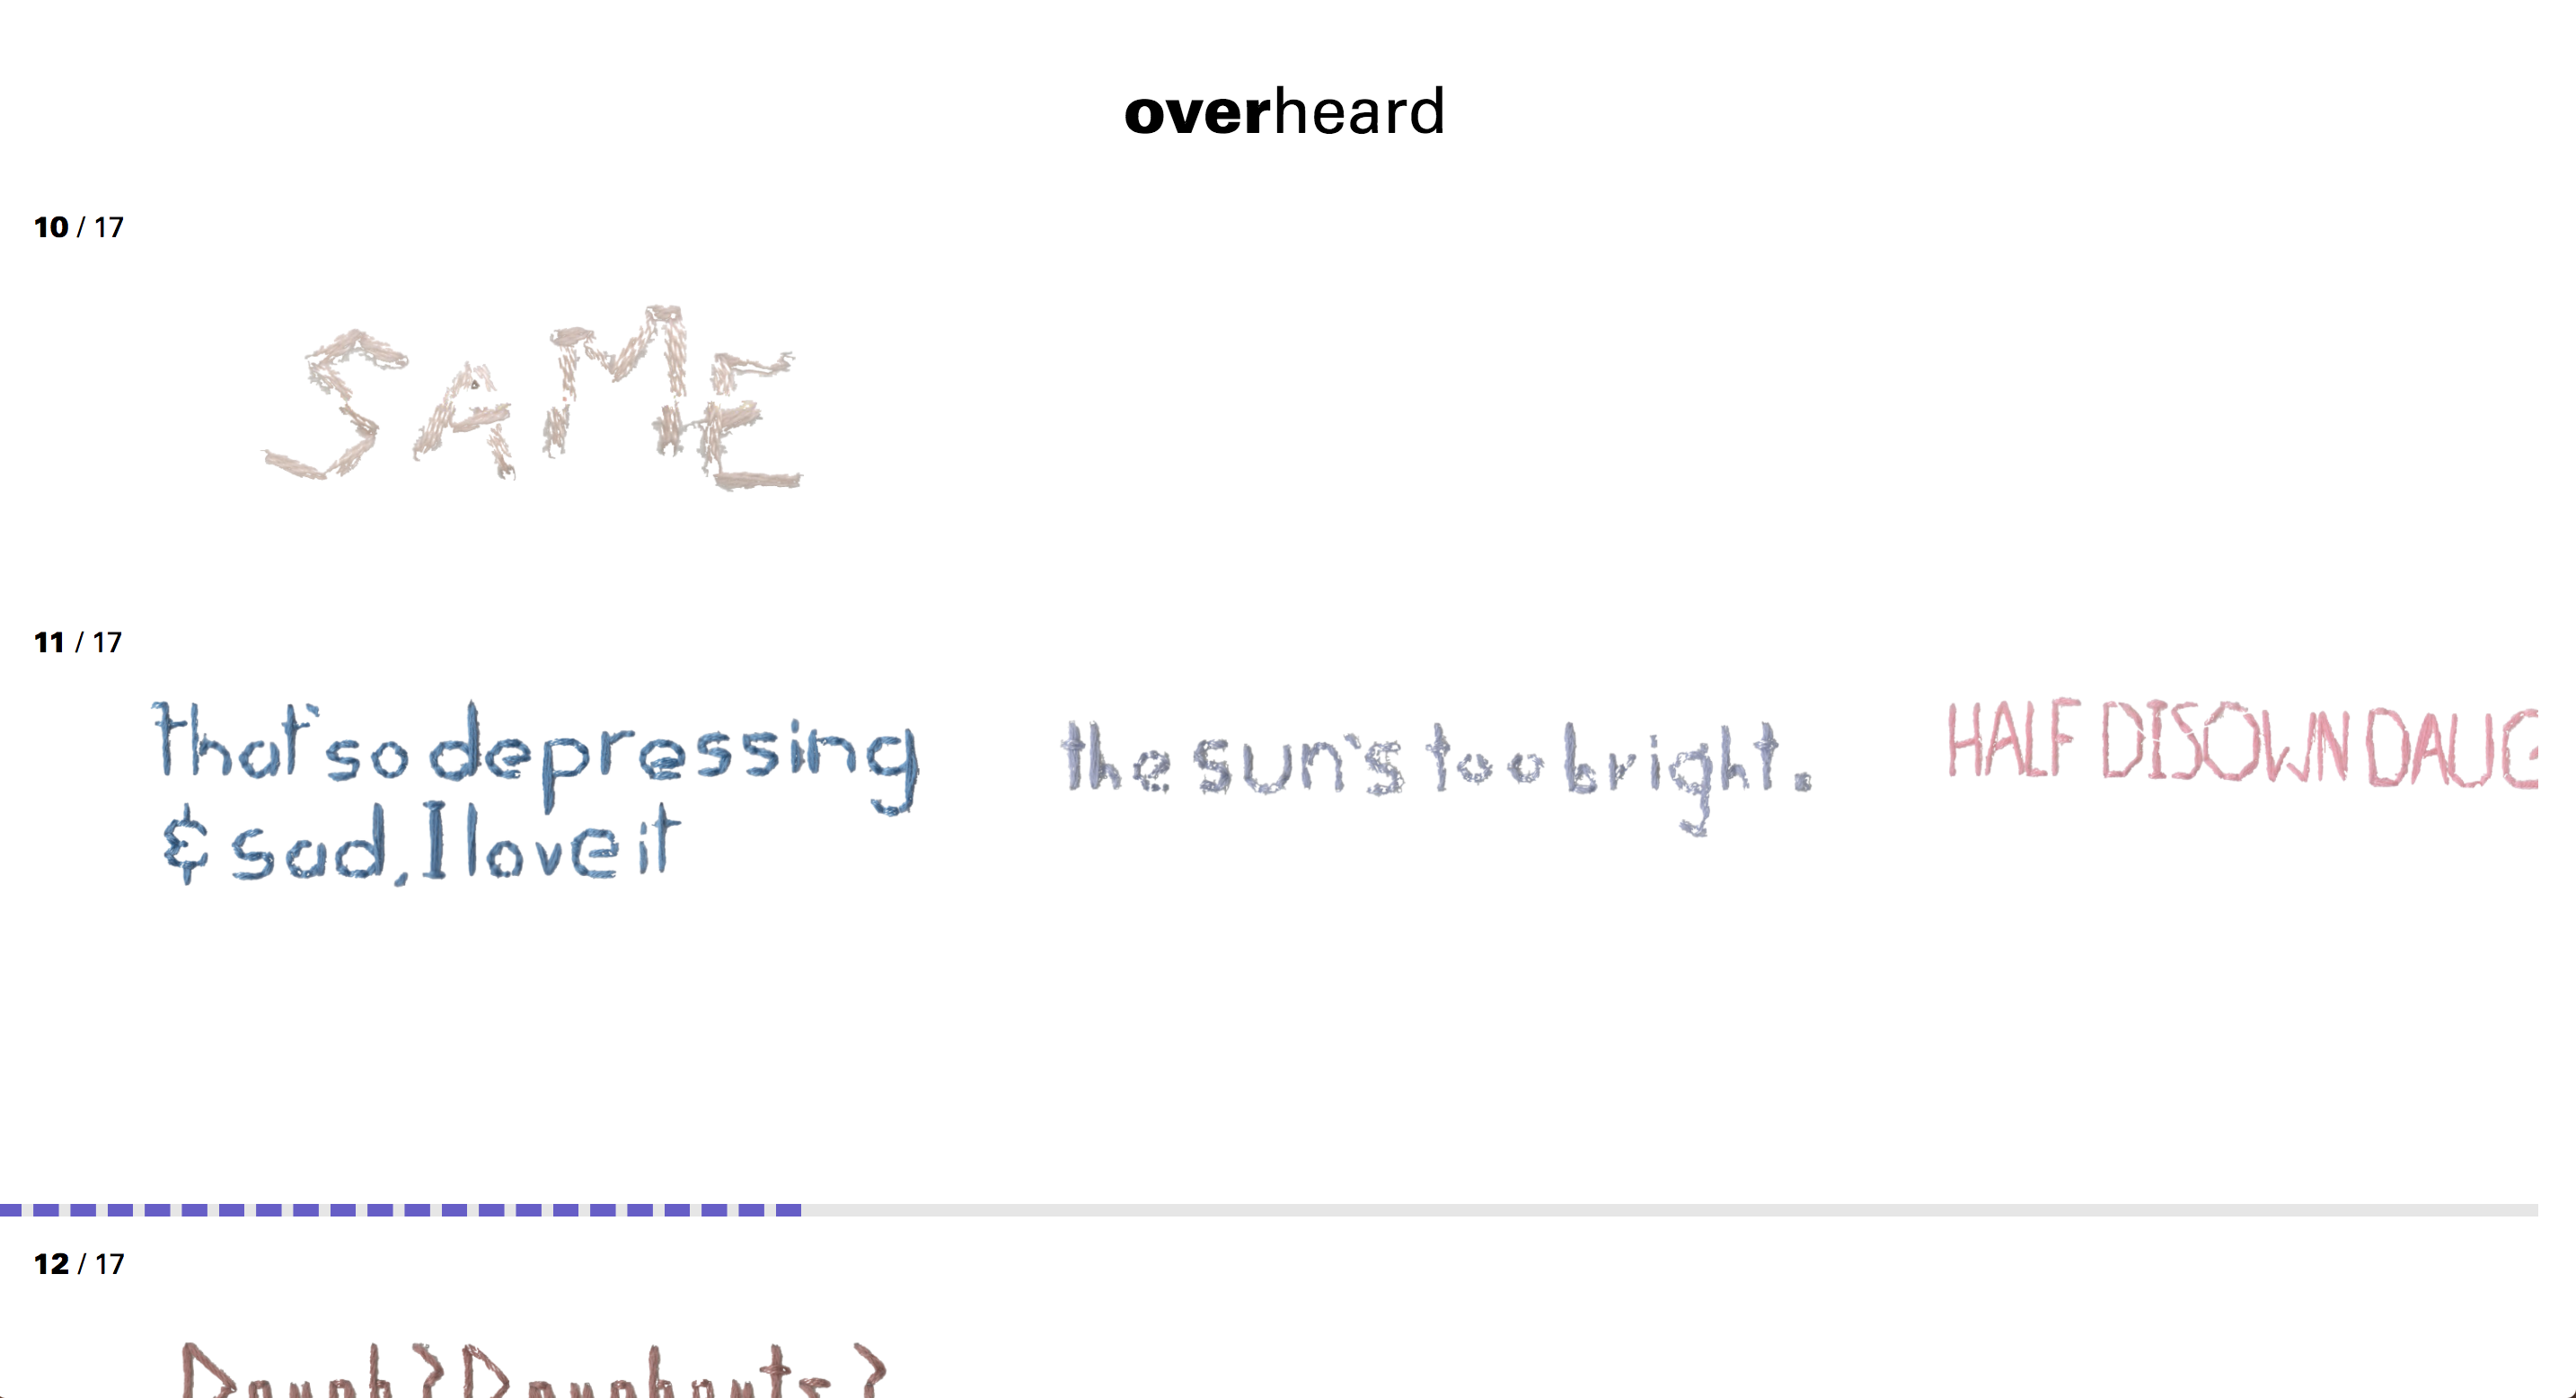 overheard
10 / 17
SAME
11 / 17
that's so depressing
& sad, I love it
the sun's too bright.
HALF DISOWN DAUG
12 / 17
Dough? Doughnuts?